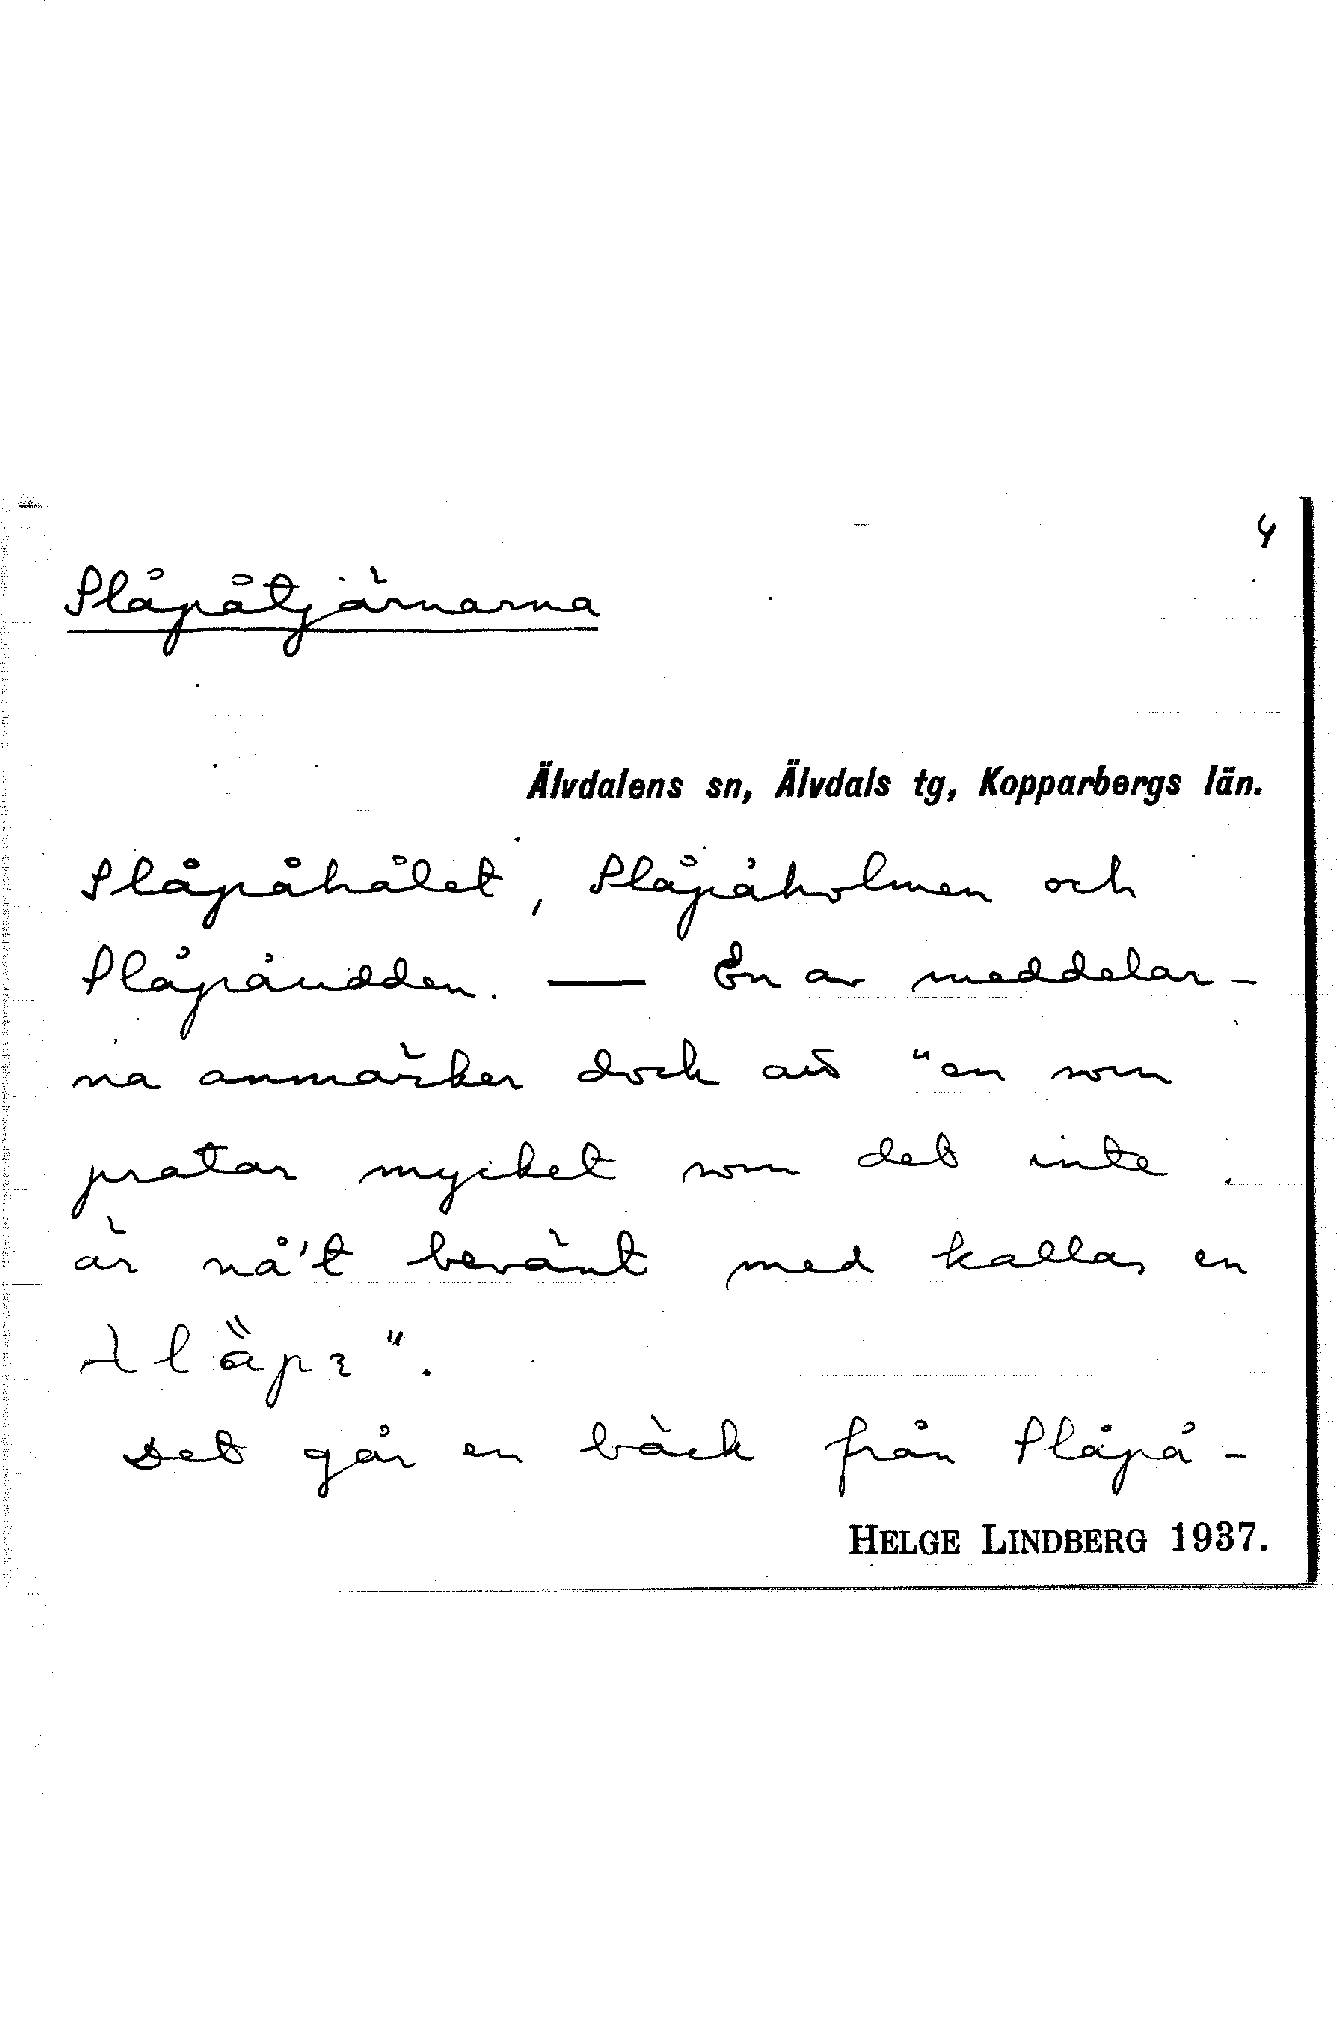 4
Slåpåtjärnarna
Älvdalens sn, Älvdals tg, Kopparbergs län.
Slåpåhålet, Slåpåholmen och
Slåpåudden. — En av meddelar-
na anmärker dock att "en som
pratar mycket som det inte
är nå't bevänt med kallas en
".
Det går en bäck från Slåpå-
HELGE LINDBERG 1937.